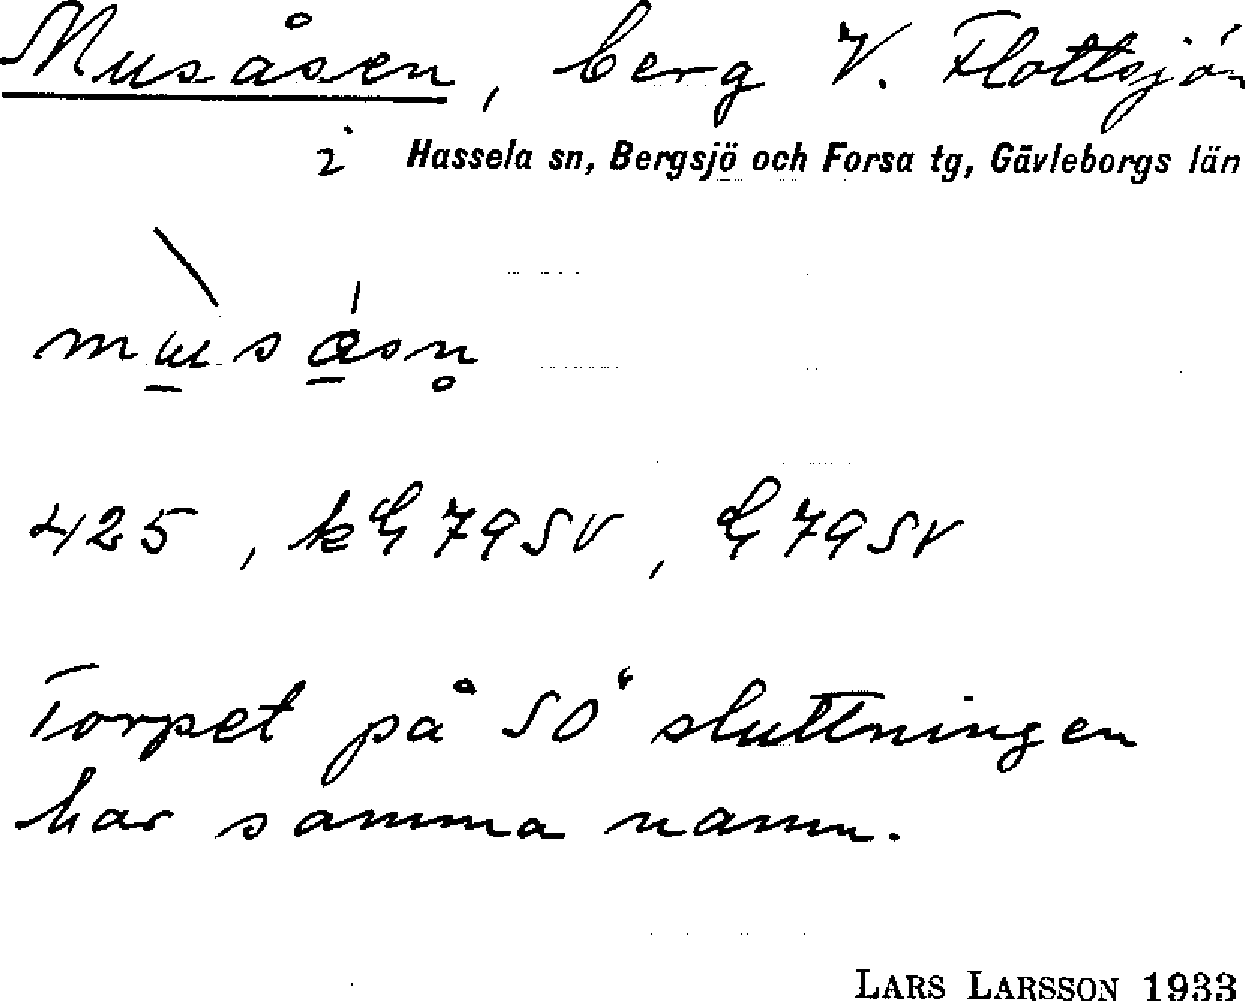 Musåsen, berg V. Flottsjön
i Hassela sn, Bergsjö och Forsa tg, Gävleborgs län
425, kG 79 SV, G 79 SV
Torpet på SO sluttningen
har samma namn.
LARS LARSSON 1933